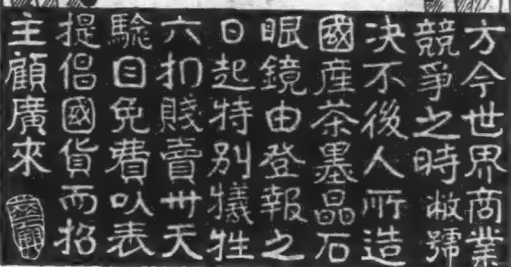 方今世界商業
競爭之時敝號
決不後人所造
國產茶墨晶石
眼鏡由登報之
日起特別犧牲
六扣賤賣卅天
驗目免費以表
提倡國貨而招
主顧廣來